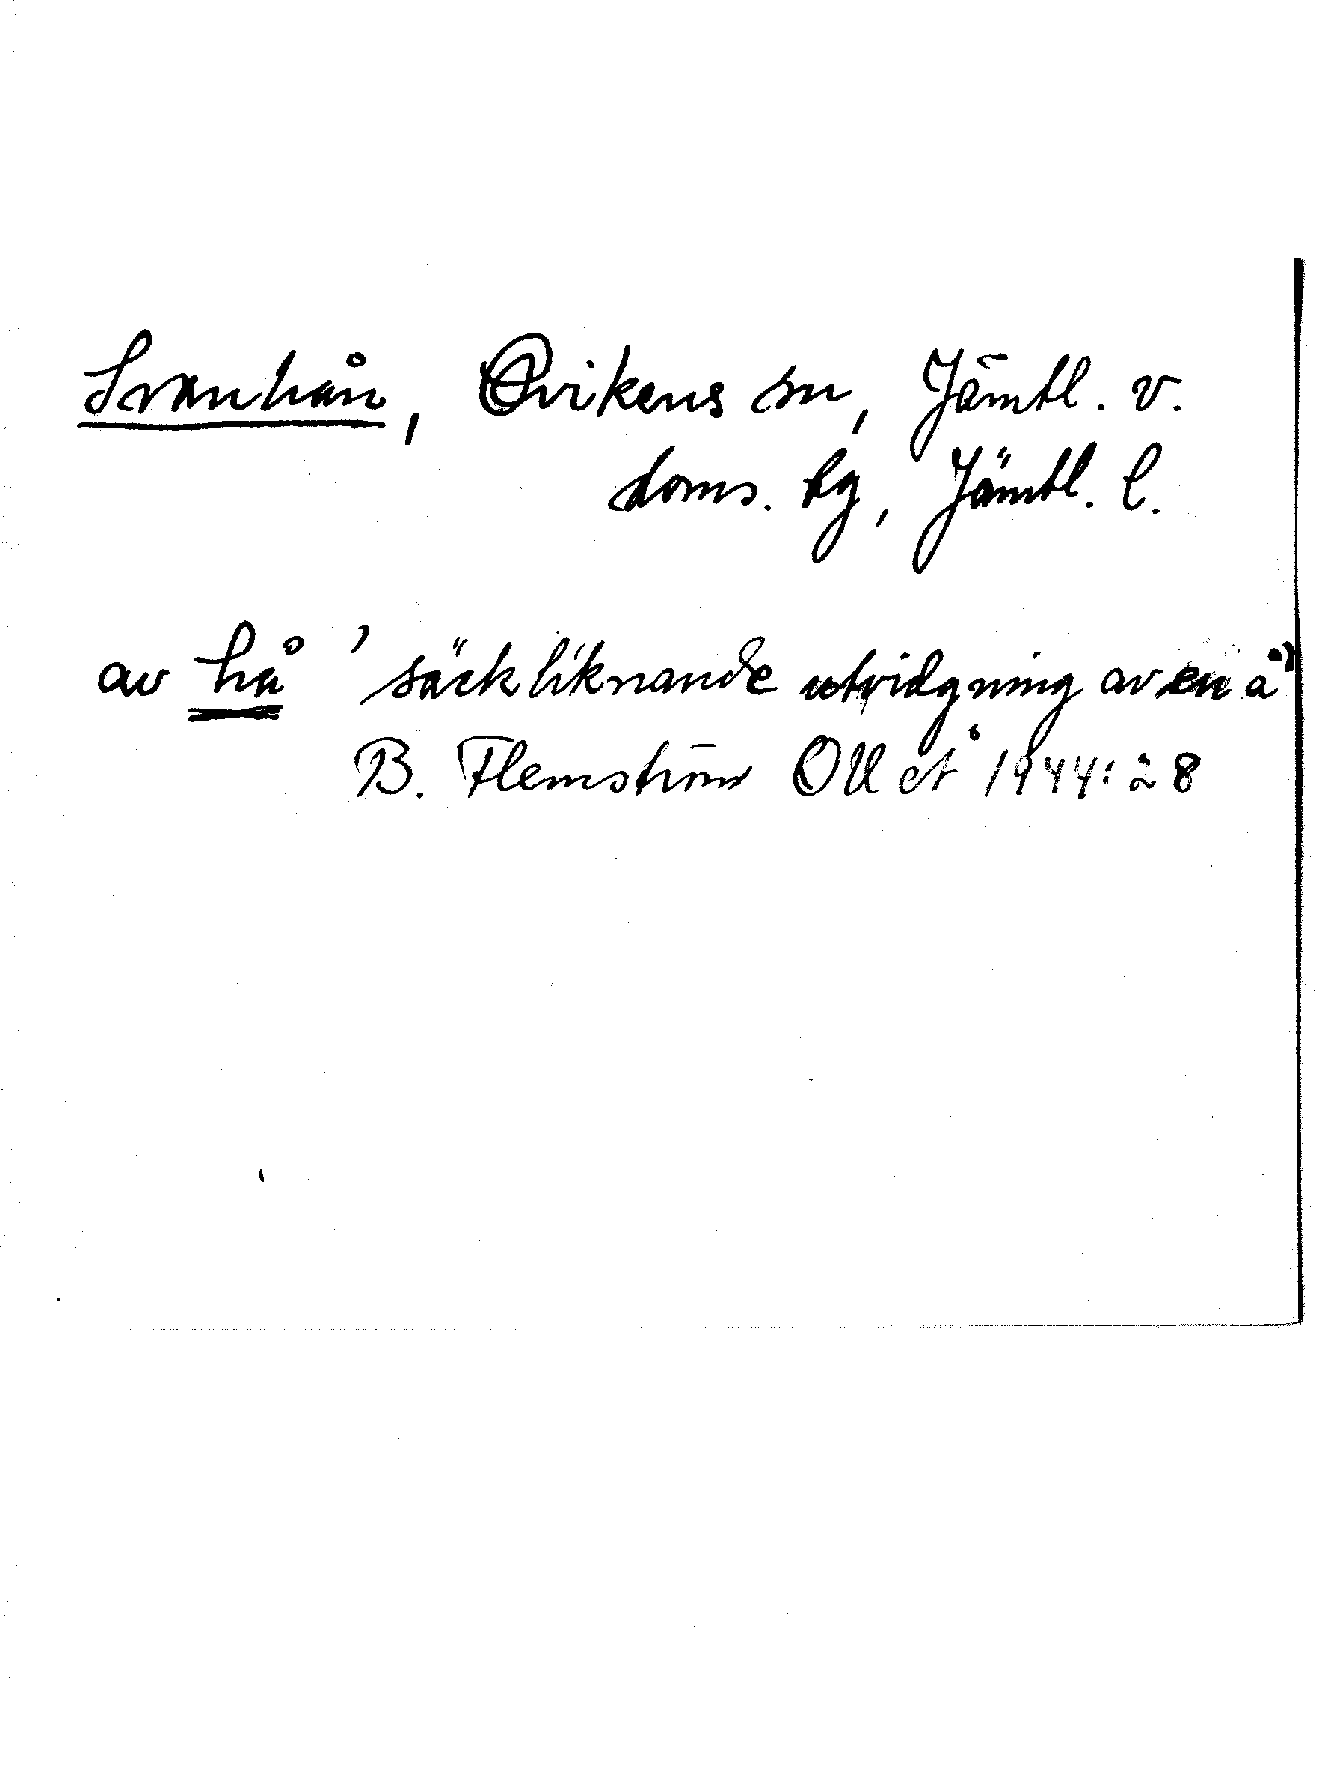 Svanhån, Ovikens sn, Jämtl. v.
doms. tg, Jämtl. l.
av hå 'säckliknande utvidgning av en å'
B. Flemström OUÅ 1944:28